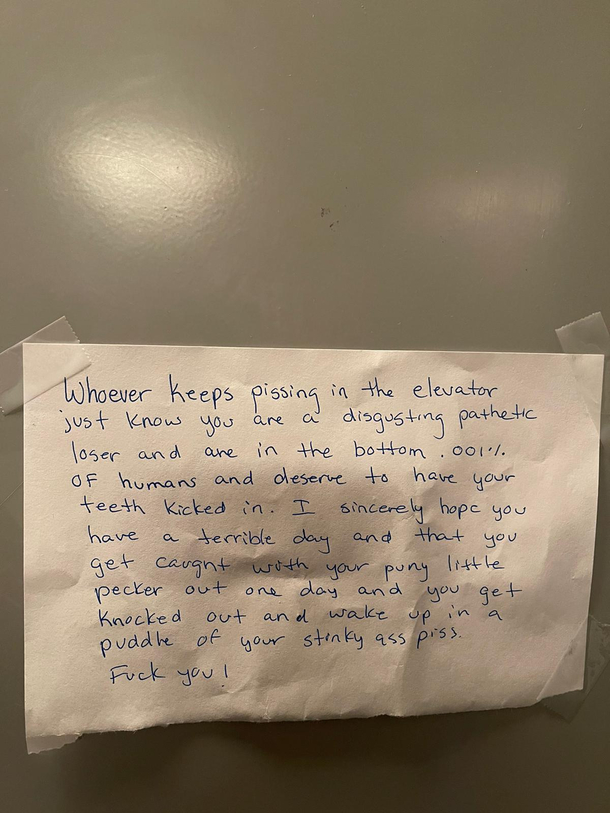 Whoever keeps pissing in the elevator
just know you are a disgusting pathetic
loser and are in the bottom .001%
OF humans and deserve to have your
teeth kicked in. I sincerely hope you
have a terrible day and that you
get caught with your puny little
pecker out one day and you get
knocked out and wake up in a
puddle of your stinky ass piss.
Fuck you!